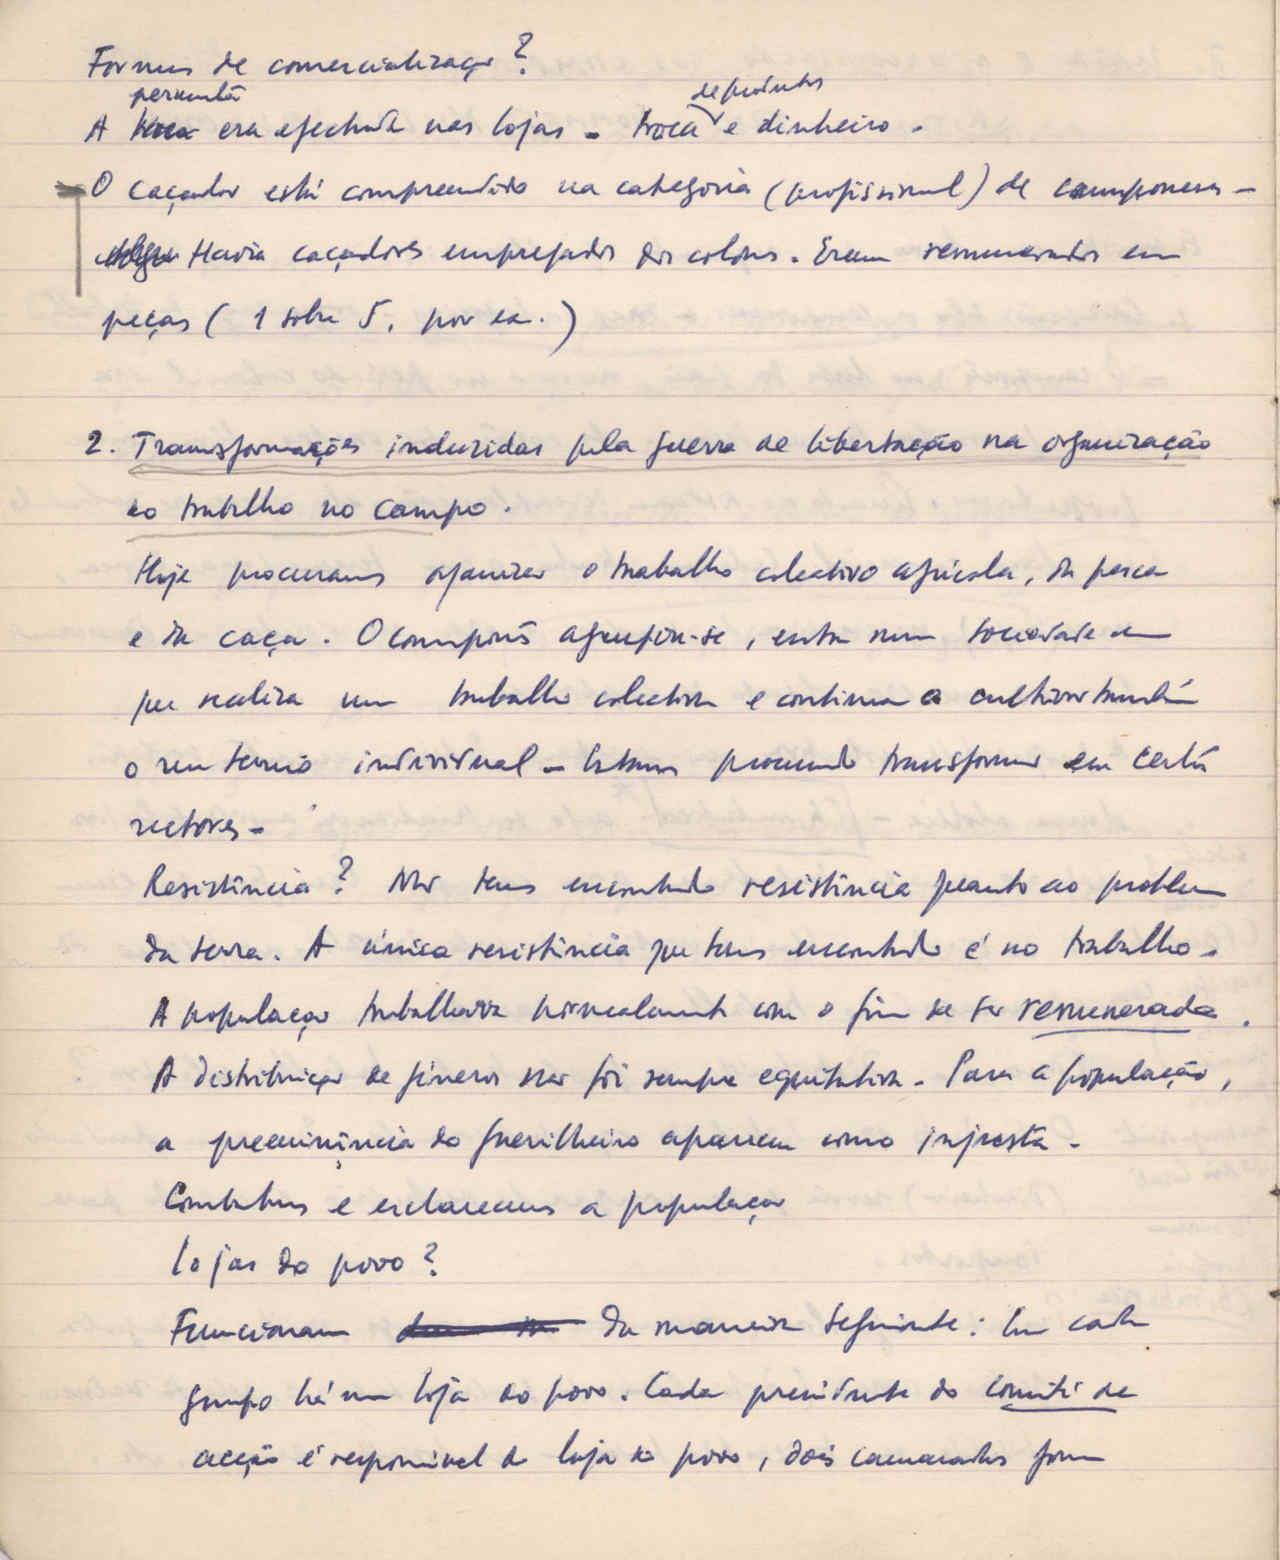 Formas de comercialização?
permuta
de produtos
A troca era efectuada nas lojas - troca e dinheiro.
O caçador está compreendido na categoria (profissional) de camponeses -
Havia caçadores empregados dos colonos. Eram remunerados em
peças (1 sobre 5, por ex.)
2. Transformações induzidas pela guerra de libertação na organização
do trabalho no campo.
Hoje procuramos organizar o trabalho colectivo agrícola, da pesca
e da caça. O camponês agrupa-se, entra numa sociedade em
que realiza um trabalho colectivo e continua a cultivar também
o seu terreno individual - Estamos procurando transformar em certos
sectores -
Resistência? Não temos encontrado resistência quanto ao problema
da terra. A única resistência que temos encontrado é no trabalho.
A população trabalhava normalmente com o fim de ser remunerada.
A distribuição de géneros não foi sempre equitativa. Para a população,
a preeminência do guerrilheiro aparecem como injusta.
Combatemos e esclarecemos a população
Lojas do povo?
Funcionam da maneira seguinte: Em cada
grupo há uma loja do povo. Cada presidente do comité de
acção é responsável da loja do povo, dois camaradas